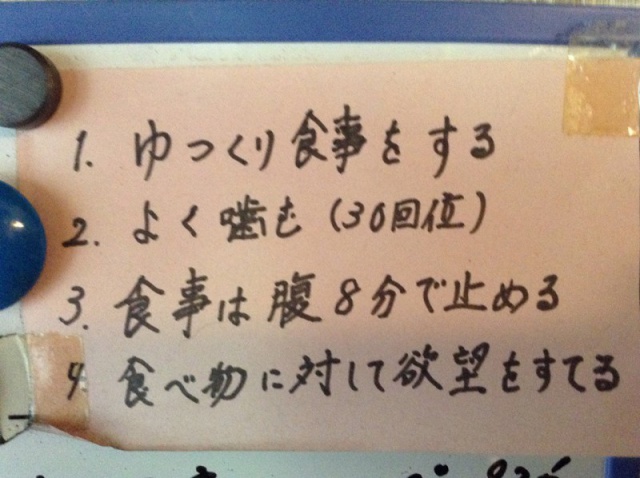 1. ゆっくり食事をする
2. よく噛む(30回位)
3. 食事は腹8分で止める
4 食べ物に対して欲望をすてる